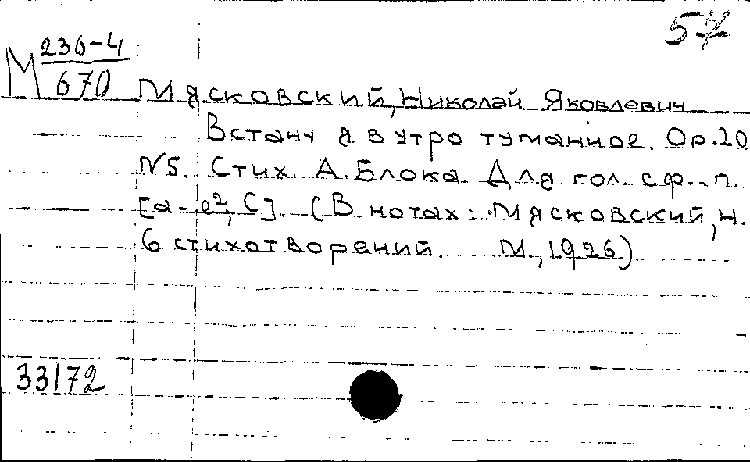 57
М 236-4
670
Мясковский, Николай Яковлевич
Встану я в утро туманное. Op.20
N5. Стих. А. Блока. Для гол. с ф.-п.
[a-e², C]. (В нотах: Мясковский, Н.
6 стихотворений. М., 1926)
33172